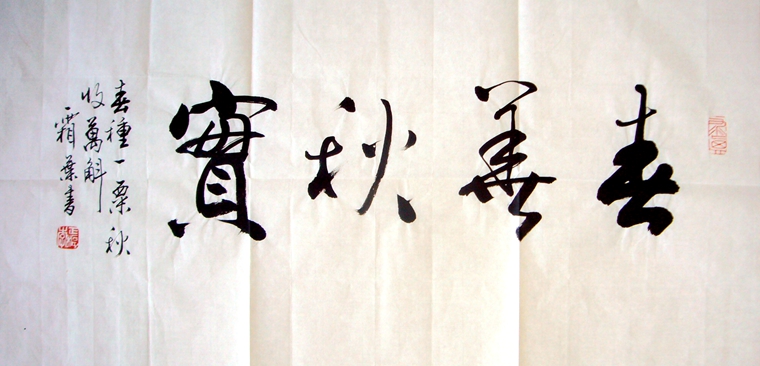 春華秋實
春種一粟秋
收萬斛
一霜葉書